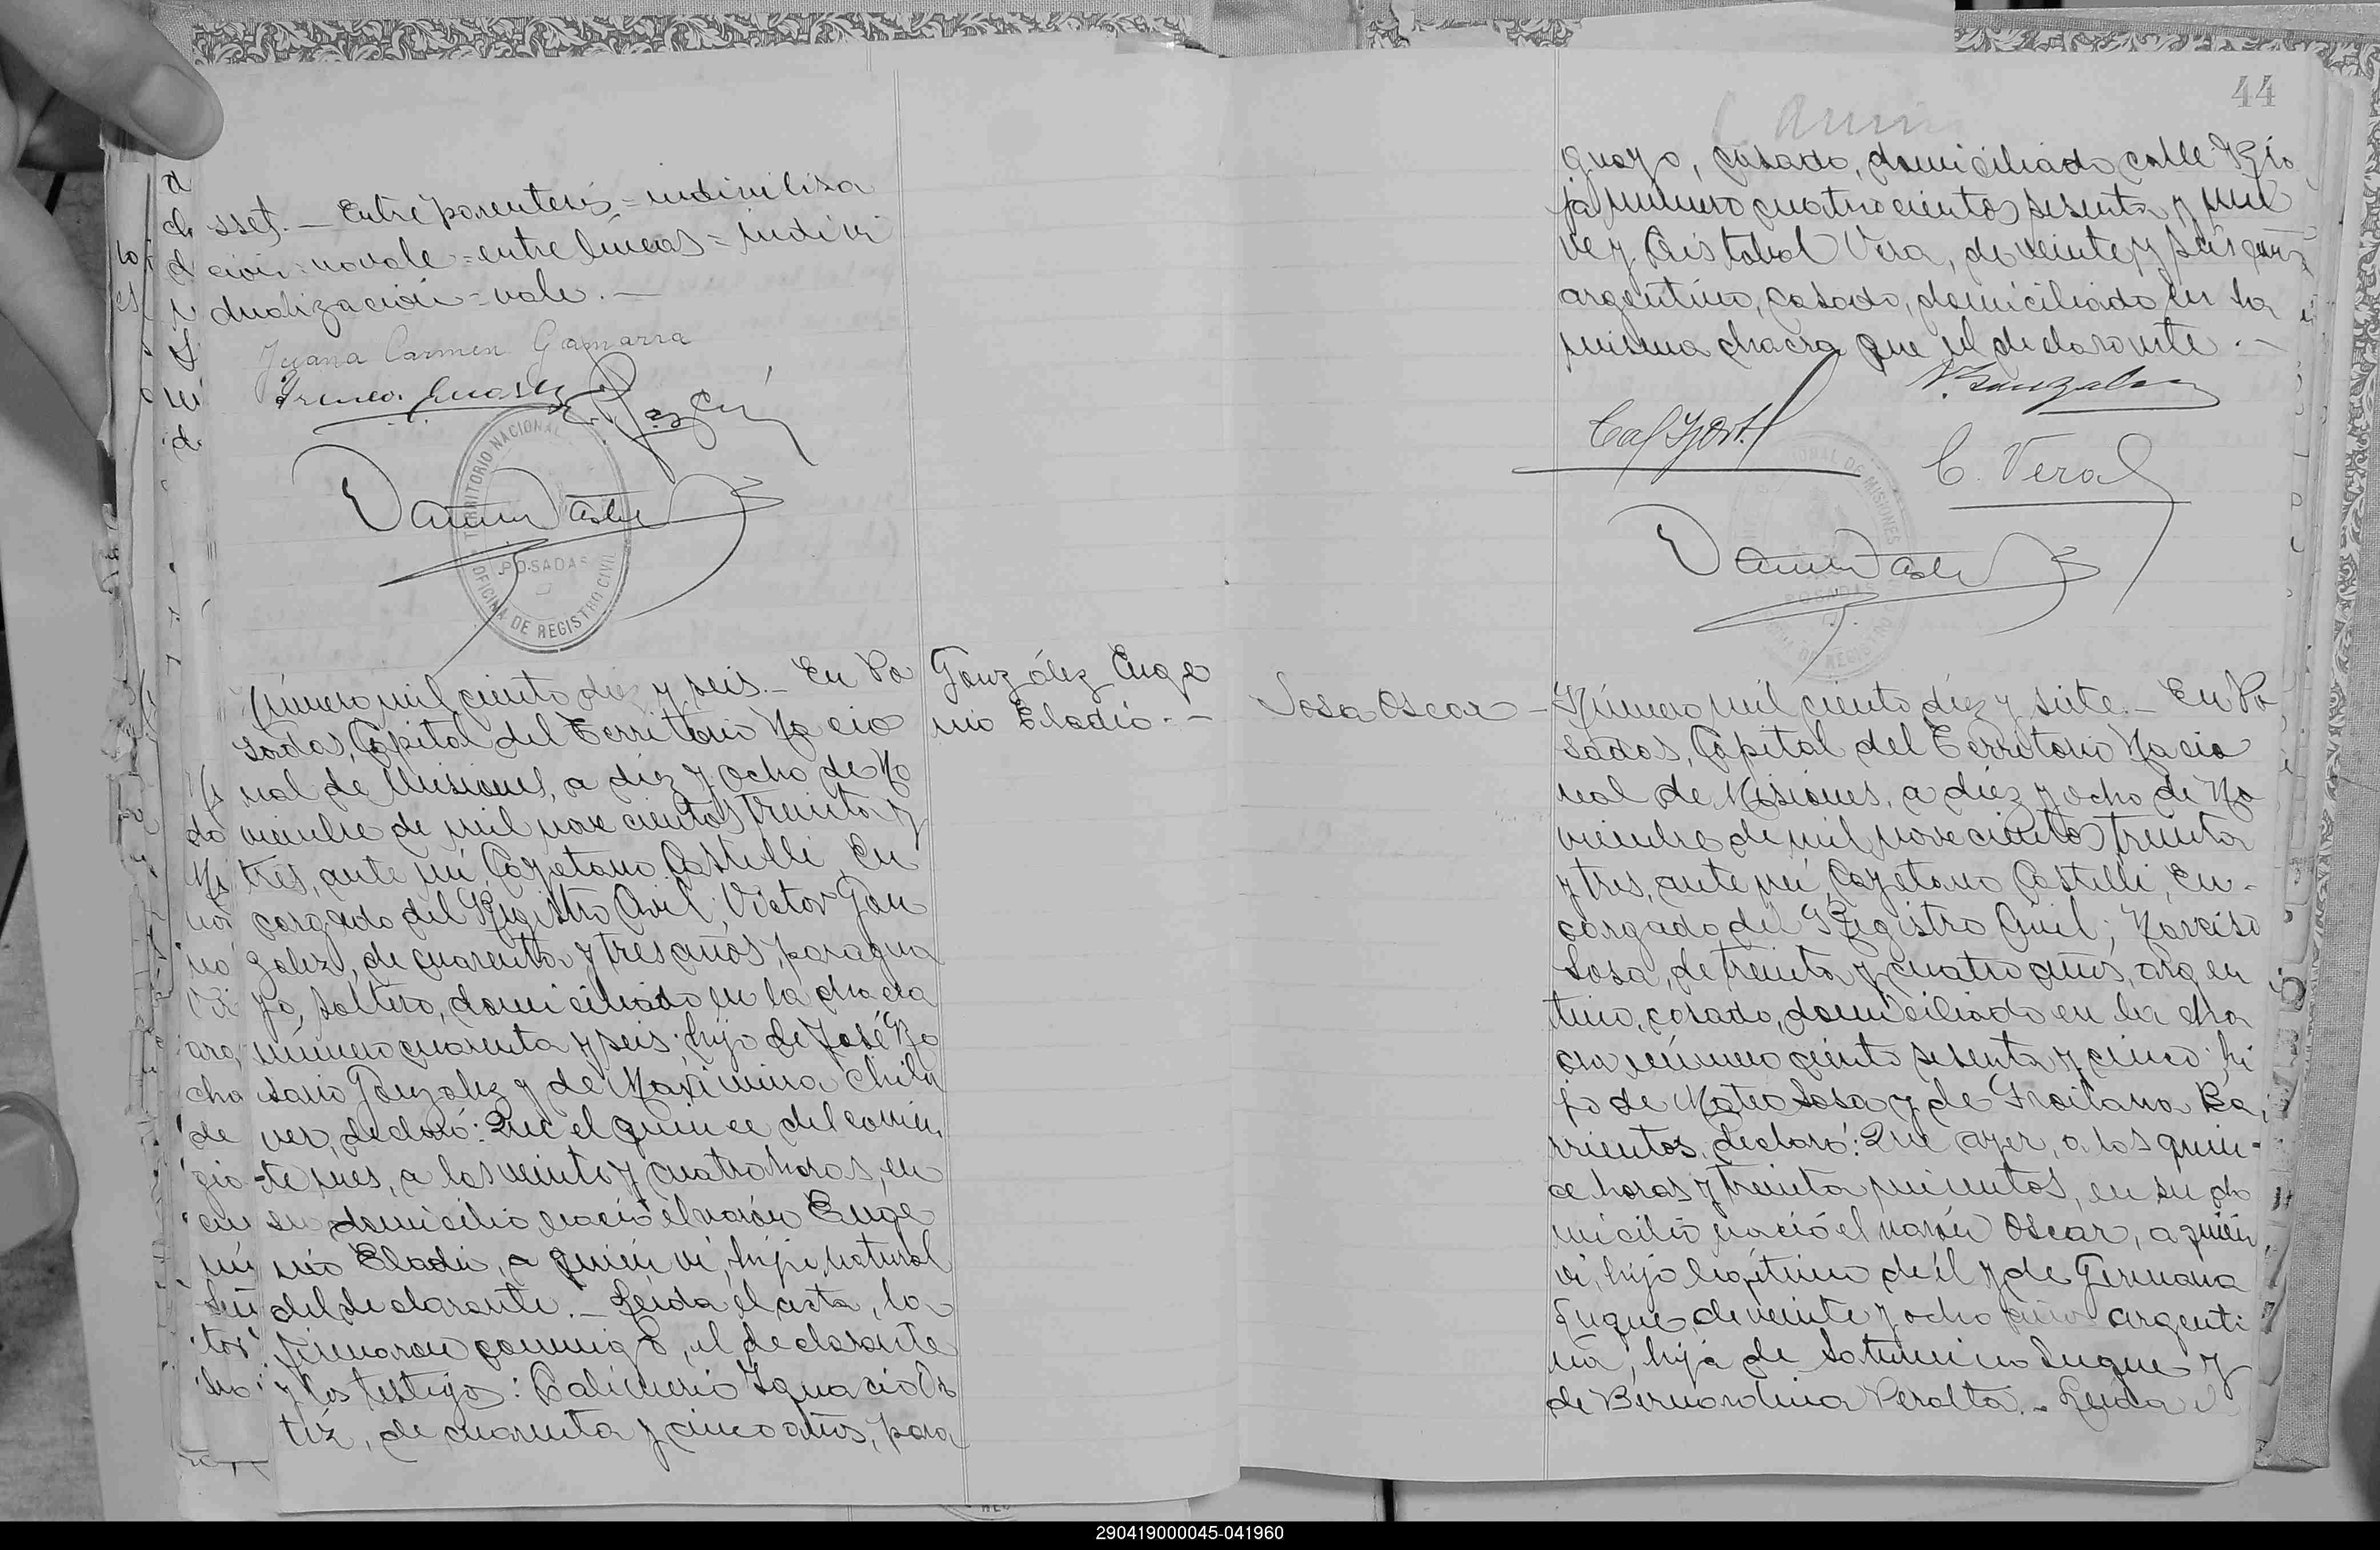 sset. — Entre parentesis = indiviliza
ción = no vale = entre líneas = indivi
dualización = vale. —
Juana Carmen Gamarra
TERRITORIO NACIONAL
POSADAS
OFICINA DE REGISTRO CIVIL
Número mil ciento diez y seis. — En Po
sadas, Capital del Territorio Nacio
nal de Misiones, a diez y ocho de No
viembre de mil novecientos treinta y
tres, ante mí Cayetano Castelli, En
cargado del Registro Civil; Victor Gon
zalez, de cuarenta y tres años, paragua
yo, soltero, domiciliado en la chacra
número cuarenta y seis, hijo de José Ro
sario Gonzalez y de Maximina Chila
ver, declaró: Que el quince del corrien
te mes, a las veinte y cuatro horas, en
su domicilio, nació el varón Euge
nio Eladio, a quien ví, hijo natural
del declarante. — Leída el acta, la
firmaron conmigo, el declarante
y los testigos: Calimerio Ignacio Or
tiz, de cuarenta y cinco años, para
González Euge
nio Eladio. —
44
guayo, casado, domiciliado calle Rio
ja número cuatrocientos sesenta y nue
ve y Cristobal Vera, de veinte y seis años
argentino, casado, domiciliado en la
misma chacra que el declarante. —
V. Gonzalez
C. Vera
POSADAS
Sosa Oscar —
Número mil ciento diez y siete. — En Po
sadas, Capital del Territorio Nacio
nal de Misiones, a diez y ocho de No
viembre de mil novecientos treinta
y tres, ante mí, Cayetano Castelli, En-
cargado del Registro Civil; Narciso
Sosa, de treinta y cuatro años, argen
tino, casado, domiciliado en la cha
cra número ciento sesenta y cinco, hi
jo de Mateo Sosa y de Froilana Ba
rrientos, declaró: Que ayer, a las quin-
ce horas y treinta minutos, en su do
micilio nació el varón Oscar, a quien
ví, hijo legítimo de él y de Germana
Luque de veinte y ocho años argenti
na, hija de Saturnino Luque y
de Bernardina Peralta. — Leída el
290419000045-041960